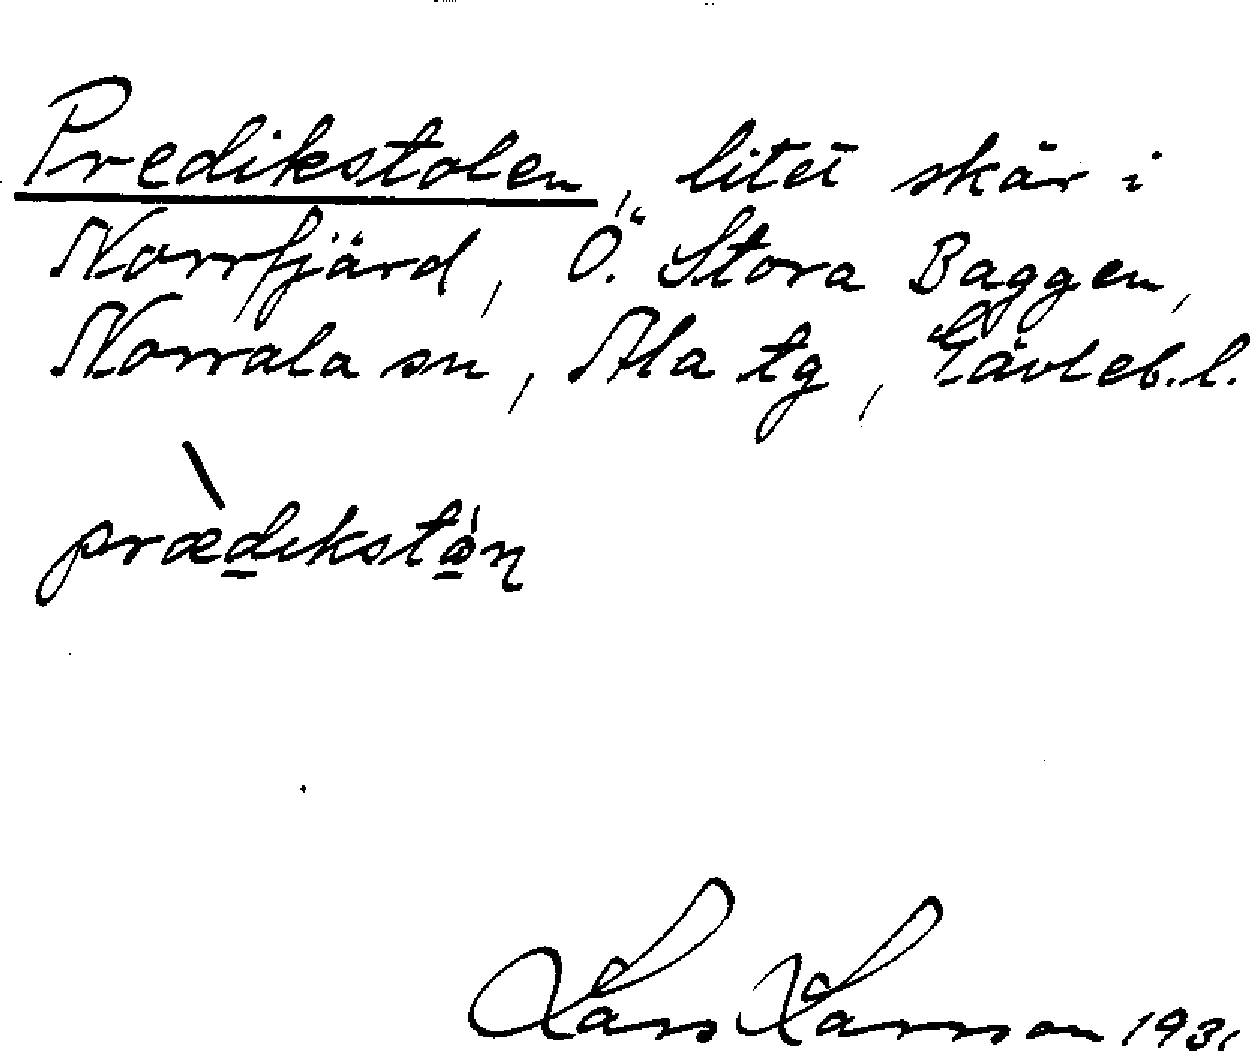 Predikstolen, litet skär i
Norrfjärd, Ö. Stora Baggen,
Norrala sn, Ala tg, Gävleb.l.
Lars Larsson 1931